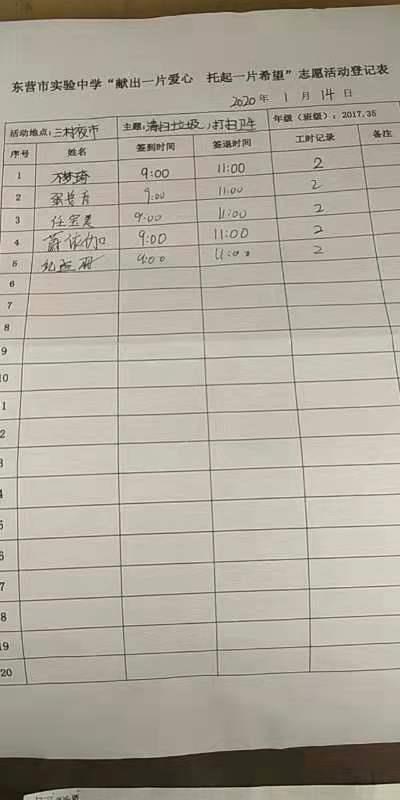 东营市实验中学“献出一片爱心 托起一片希望”志愿活动登记表
2020年 1 月 14 日
活动地点:三村夜市 主题:清扫垃圾,打扫卫生 年级(班级):2017.35
序号 姓名 签到时间 签退时间 工时记录 备注
1 梦琦 9:00 11:00 2
2 9:00 11:00 2
3 任 9:00 11:00 2
4 依伽 9:00 11:00 2
5 9:00 11:00 2
6
7
8
9
10
1
2
3
4
5
6
7
8
19
20